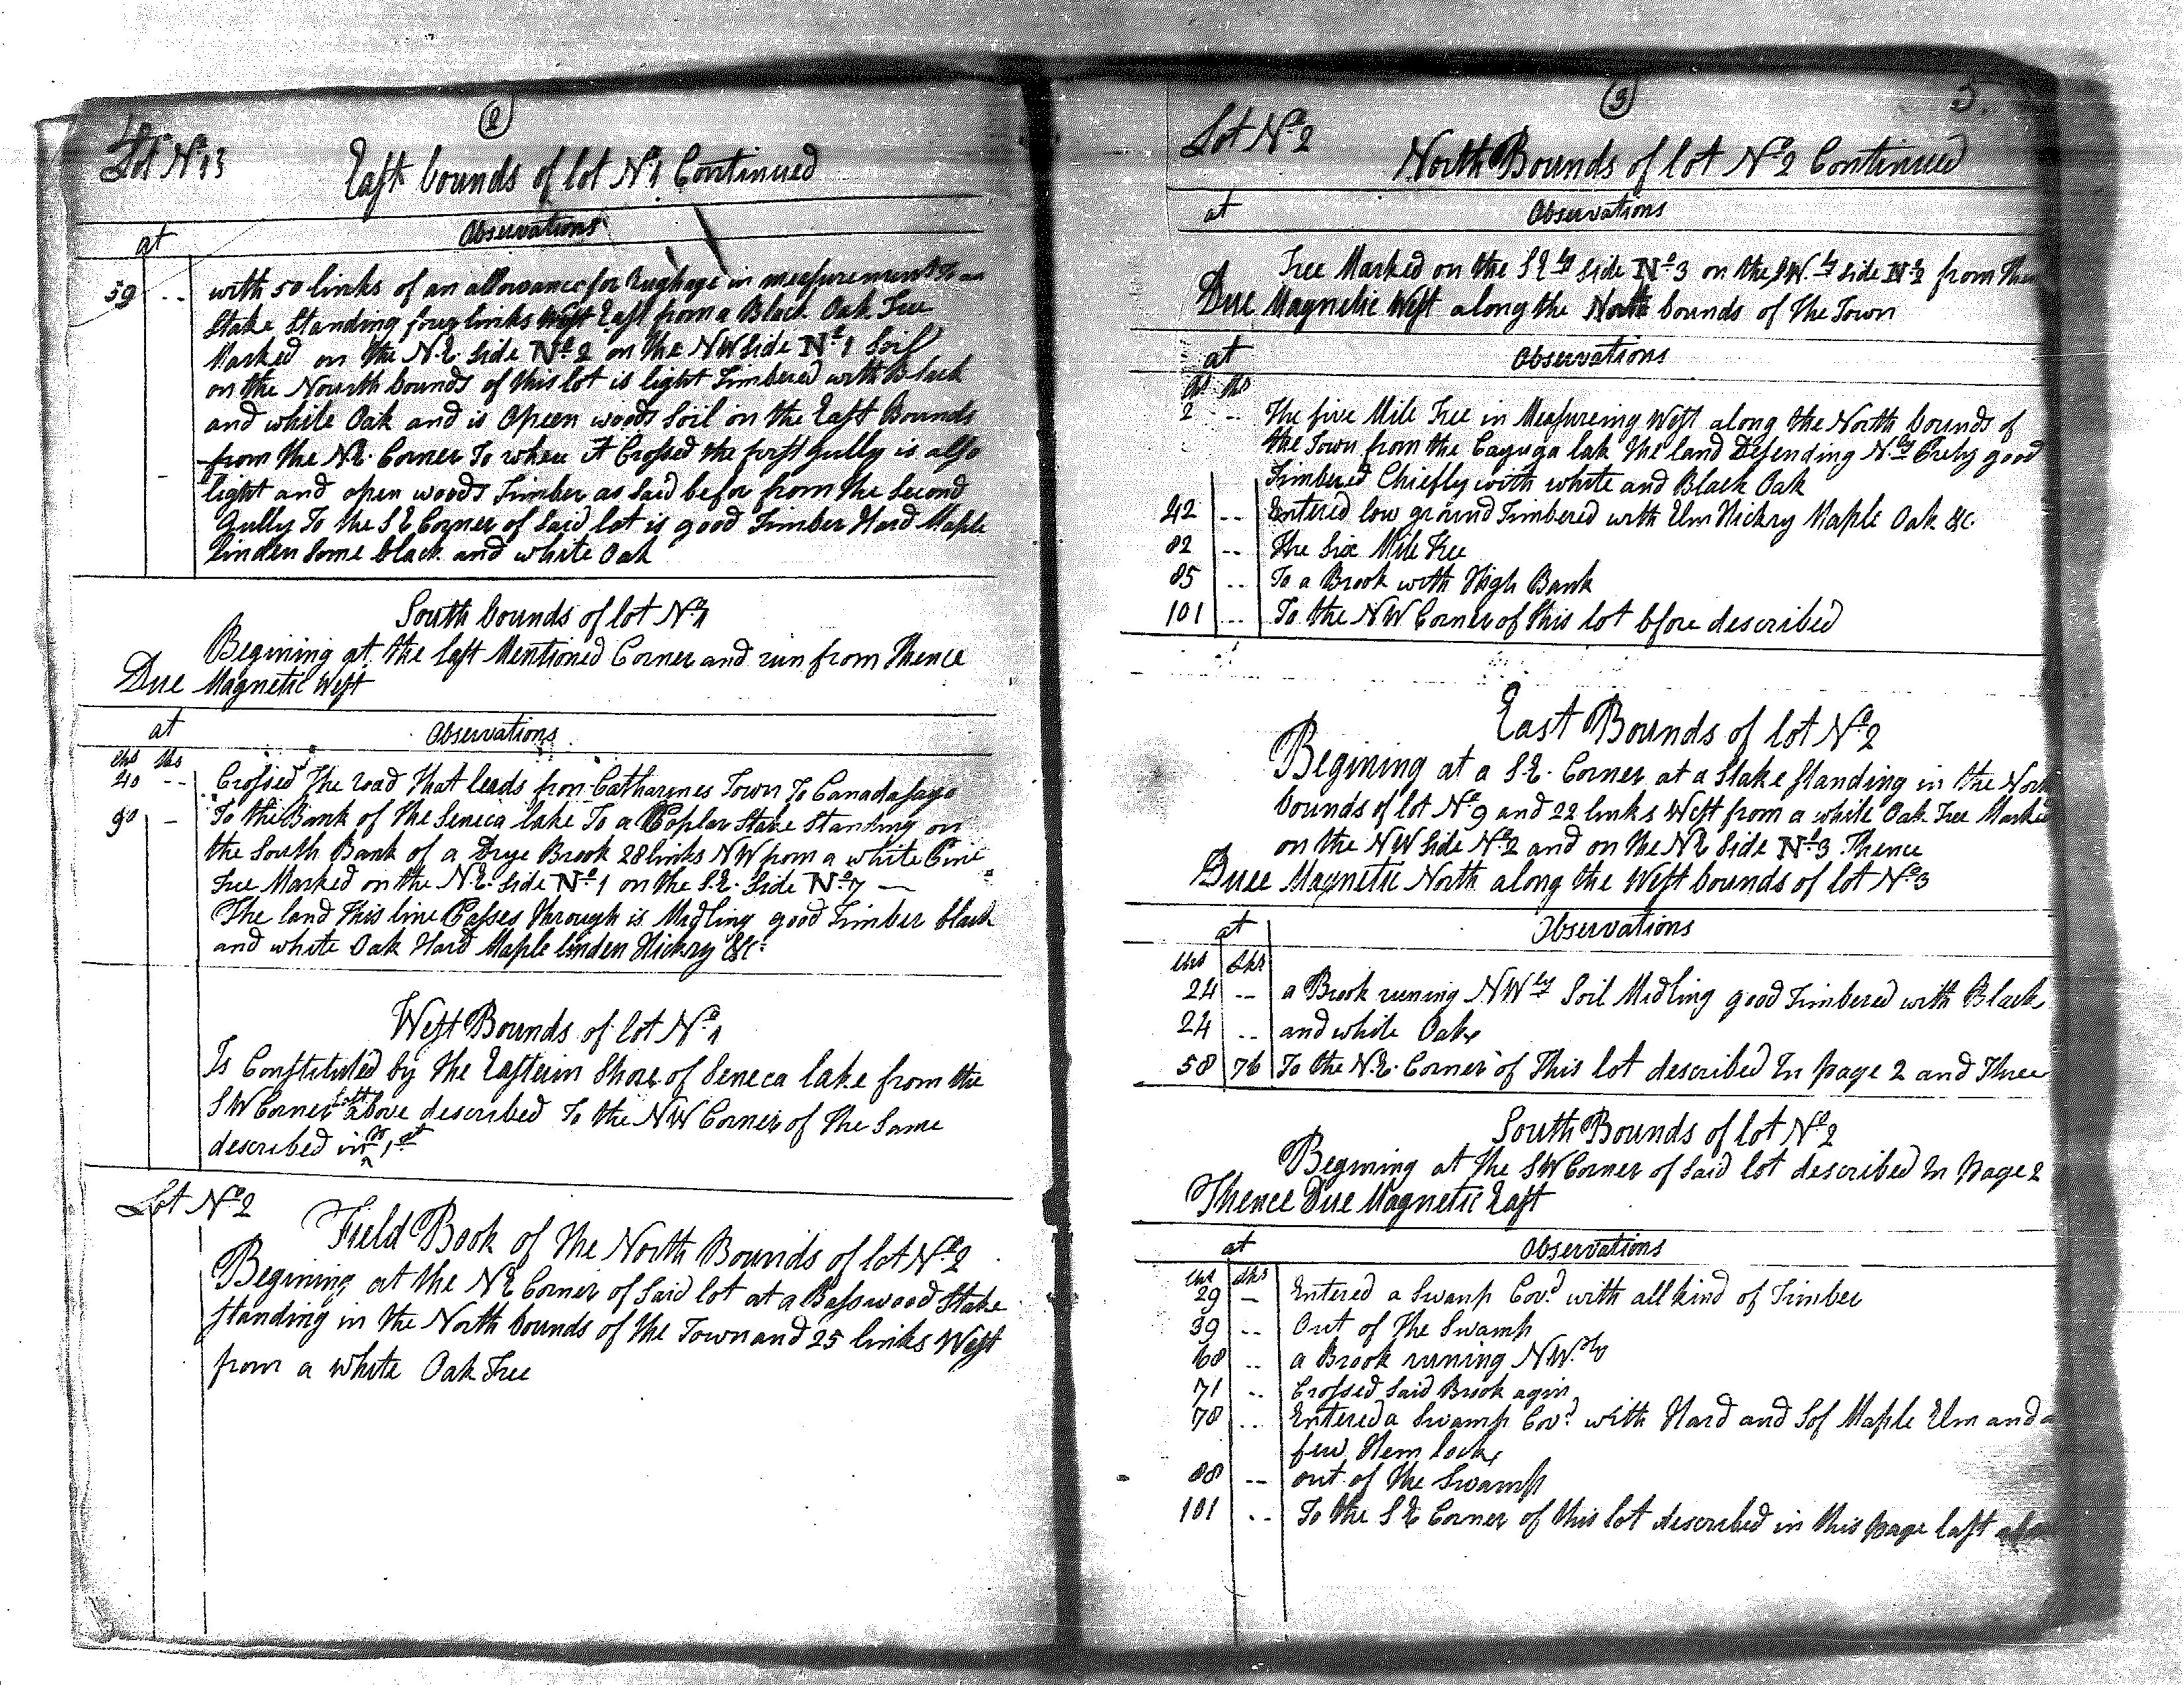 2
Lot No 1
East bounds of lot No 1 Continued
at Observations
59 -- with 50 links of an allowance for Rughage in measurement To a
Stake Standing four links West East from a Black Oak Tree
Marked on the N.E. Side No 2 on the NW Side No 1 Soil
on the Nourth bounds of this lot is light Timbered with Black
and white Oak and is Opeen woods Soil on the East Bounds
from the N.E. Corner To where it Crossed the first gully is also
light and open woods Timber as Said befor from the Second
Gully To the S E Corner of Said lot is good Timber Hard Maple
linden Some black and white Oak
South bounds of lot No 1
Begining at the last Mentioned Corner and run from Thence
Due Magnetic West
at Observations
chs lks
40 -- Crossed The road That leads from Catharines Town To Canadasago
90 - To the Bank of the Seneca lake To a Poplar Stake Standing on
the South Bank of a Drye Brook 28 links NW from a white Pine
Tree Marked on the N.E. Side No 1 on the S.E. Side No 7 —
The land this line Passes through is Midling good Timber black
and white Oak Hard Maple linden Hickry &c.
West Bounds of lot No 1
Is Constituted by the Eastern Shore of Seneca lake from the
S W Corner last above described To the NW Corner of The Same
described in 1st
Lot No 2
Field Book of the North Bounds of lot No 2
Begining at the N E Corner of Said lot at a Basswood Stake
Standing in the North bounds of the Town and 25 links West
from a white Oak Tree
3
Lot No 2
North Bounds of lot No 2 Continued
at Observations
Tree Marked on the S Ely Side No 3 on the S W.ly Side No 2 from
Due Magnetic West along the North bounds of The Town
at Observations
chs lks
2 -- The five Mile Tree in Measureing West along the North bounds of
the Town from the Cayuga lak The land Desending N.ly Prety good
Timbered Chiefly with white and Black Oak
42 -- Entered low ground Timbered with Elm Hickry Maple Oak &c.
82 -- The Six Mile Tree
85 -- To a Brook with High Bank
101 -- To the NW Corner of this lot bfore described
East Bounds of lot No 2
Begining at a S E. Corner at a Stake Standing in the
bounds of lot No 9 and 22 links West from a white Oak Tree
on the NW Side No 2 and on the N E Side No 3 Thence
Duee Magnetic North along the West bounds of lot No 3
at Observations
chs lks
24 -- a Brook runing NWly Soil Midling good Timbered with Black
24 -- and white Oak
58 76 To the N.E. Corner of This lot described In page 2 and Three
South Bounds of lot No 2
Begining at the S W Corner of Said lot described In Page 2
Thence Due Magnetic East
at Observations
chs lks
29 - Entered a Swamp Covd with all kind of Timber
39 -- Out of The Swamp
68 -- a Brook runing NW.ly
71 -- Crossed Said Brook agin
78 -- Entered a Swamp Covd with Hard and Sof Maple Elm and a
few Hemlock
88 -- out of The Swamp
101 -- To the S E Corner of this lot described in this page last